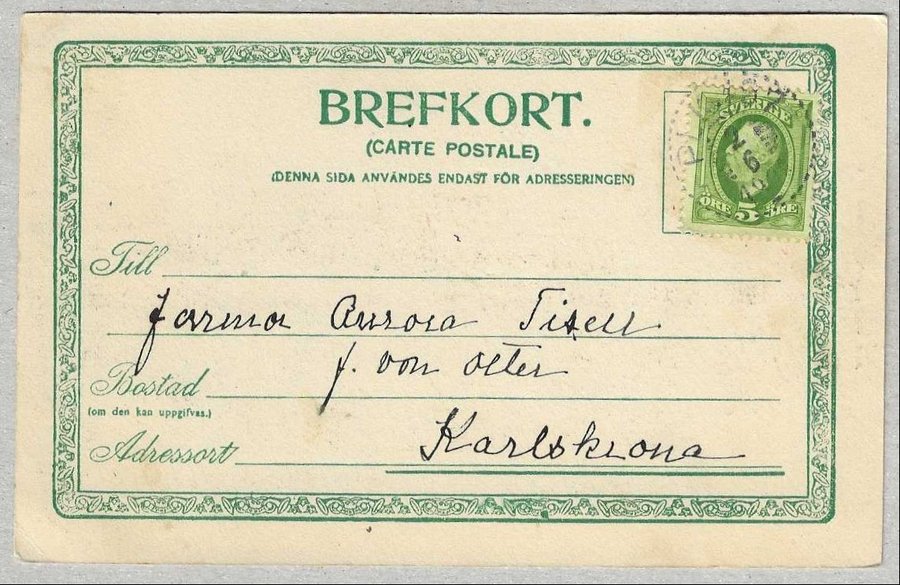 BREFKORT.
(CARTE POSTALE)
(DENNA SIDA ANVÄNDES ENDAST FÖR ADRESSERINGEN)
SVERIGE
ÖRE 5 ÖRE
Till
farmor Aurora Tisell
f. von Otter
Bostad
(om den kan uppgifvas.)
Karlskrona
Adressort